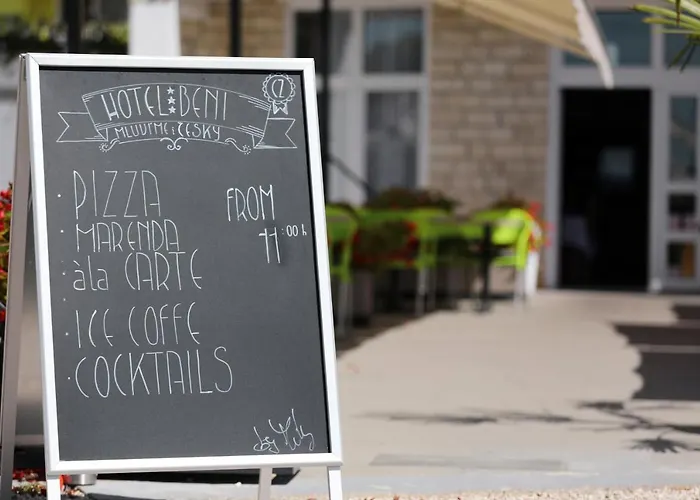 HOTEL *** BENI
CZ
MLUVÍME i ČESKY
• PIZZA
• MARENDA
• àla CARTE
FROM
11:00 h
• ICE COFFE
• COCKTAILS
by